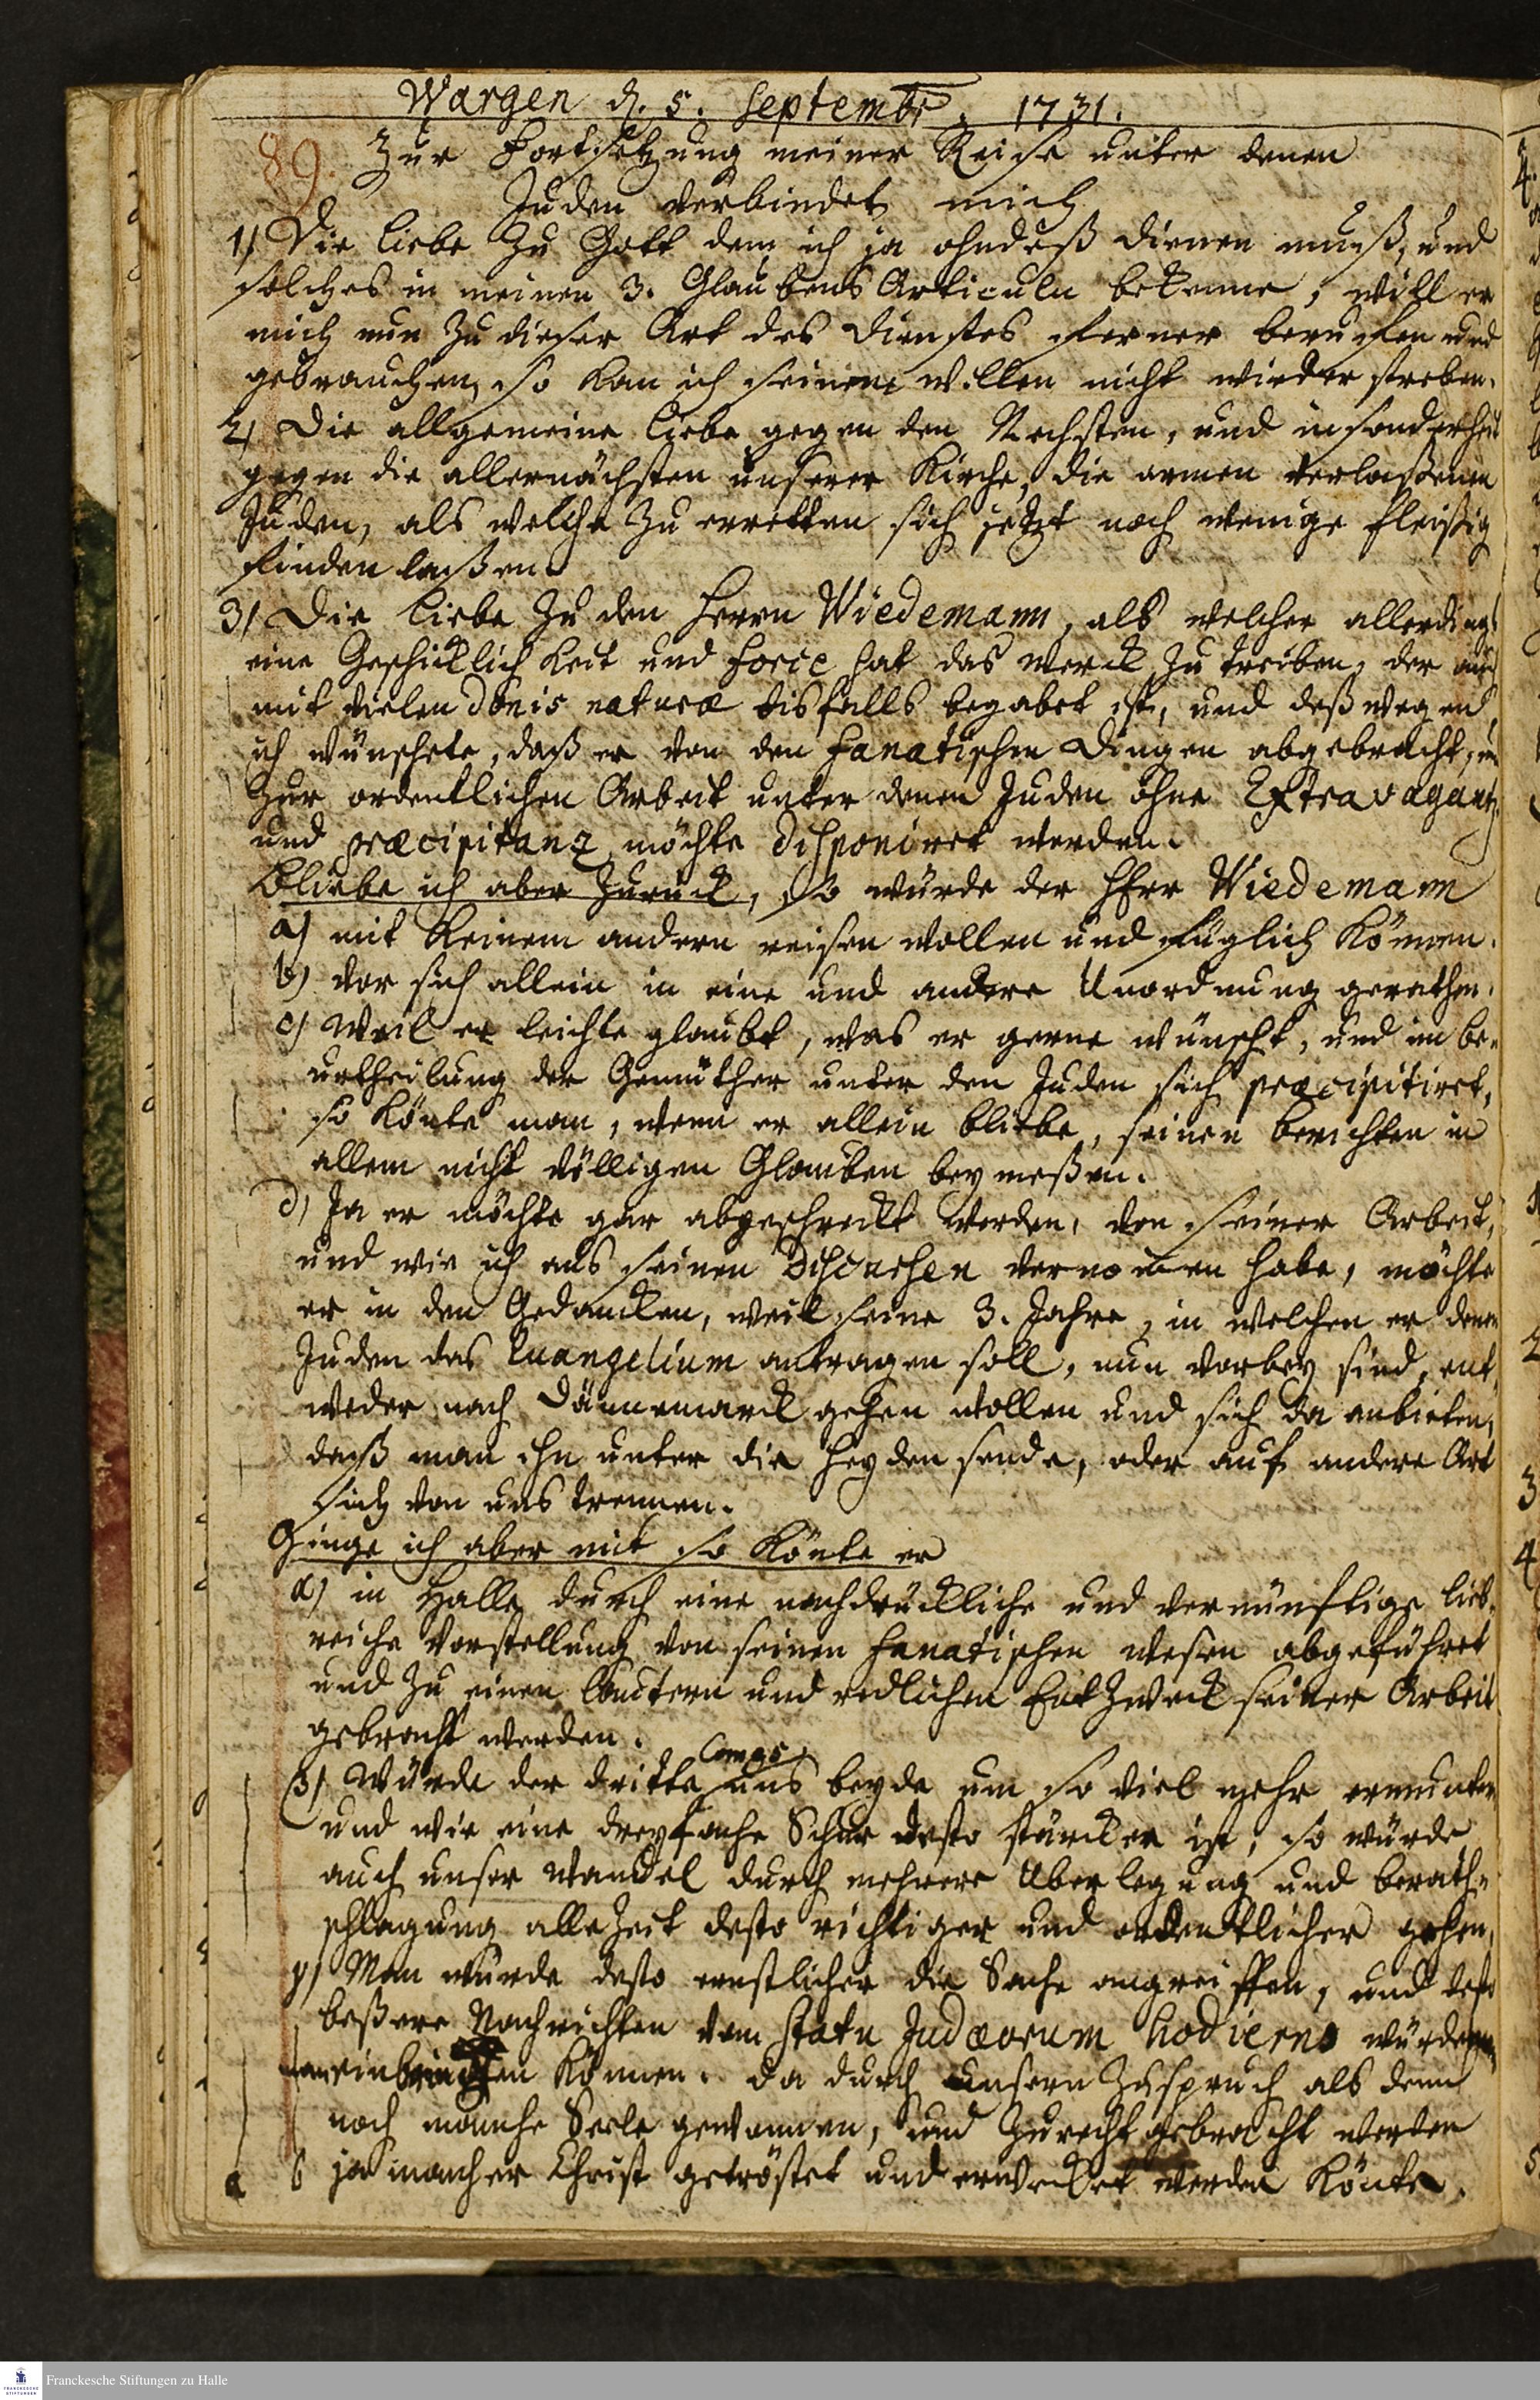 Wargen d. 5. Septembr. 1731.
89. Zur Fortsetzung meiner Reise unter denen
Juden verbindet mich
1) Die Liebe zu Gott dem ich ja ohndeß dienen muß, und
solches in meinen 3. Glaubens Articuln bekenne, will er
mich nun zu dieser Art des Dienstes ferner beruffen und
gebrauchen, so kan ich seinem Willen nicht wieder streben.
2) Die allgemeine Liebe gegen den Nechsten, und insonderheit
gegen die allernächsten unserer Kirche, die armen verlaßenen
Juden, als welche zu erretten sich jetzt noch wenige fleißig
finden laßen.
3) Die Liebe zu den Herrn Wiedemann, als welcher allerdings
eine Geschicklichkeit und force hat das Werck zu treiben, der auch
mit vielen donis naturæ disfalls begabet ist, und deßwegen
ich wünschete, daß er von den fanatischen Dingen abgebracht, und
zur ordentlichen Arbeit unter denen Juden ohne Extravagantz
und præcipitanz möchte disponiret werden.
Bliebe ich aber zurück, so würde der Herr Wiedemann
a) mit keinem andern reisen wollen und füglich können.
b) vor sich allein in eine und andere Unordnung gerathen.
c) Weil er leichte glaubt, was er gerne wünscht, und im be-
urtheilung der Gemüther unter den Juden sich præcipitiret,
so könte man, wenn er allein bliebe, seinen berichten in
allem nicht völligen Glauben beymeßen.
d) Ja er möchte gar abgeschreckt werden, von seiner Arbeit,
und wie ich aus seinen Discursen vernommen habe, möchte
er in den Gedancken, weil seine 3. Jahre, in welchen er denen
Juden das Euangelium antragen soll, nun vorbey sind, ent-
weder nach Dännemarck gehen wollen und sich da anbieten,
daß man ihn unter die Heyden sende, oder auf andere Art
sich von uns trennen.
Ginge ich aber mit so könte er
α) in Halle durch eine nachdrückliche und vernünftige lieb-
reiche Vorstellung von seinen fanatischen Wesen abgeführet
und zu einen lautern und redlichen Entzweck seiner Arbeit
gebracht werden.
β) Würde der dritte Comes uns beyde um so viel mehr ermuntern
und wie eine dreyfache Schnur desto stärcker ist, so würde
auch unser Wandel durch mehrere Uberlegung und berath-
schlagung allezeit desto richtiger und ordentlicher gehen,
γ) Man würde desto ernstlicher die Sache angreiffen, und desto
beßere Nachrichten vom statu Judæorum hodierno würde man
einbringen können. da durch unsern Zuspruch als denn
noch manche Seele gewonnen, und zurecht gebracht werden
ja mancher Christ getröstet und erwecket werden könte.
Franckesche Stiftungen zu Halle